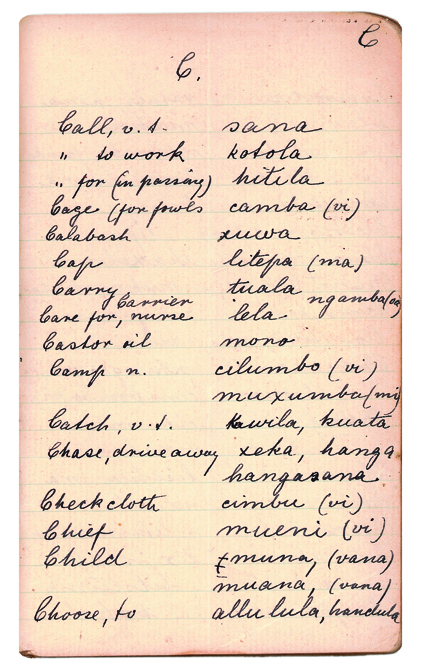 C
C.
Call, v.t. sana
" to work kotola
" for (in passing) hitila
Cage (for fowls camba (vi)
Calabash xuwa
Cap litepa (ma)
Carry tuala
Carrier ngamba
Care for, nurse lela
Castor oil mono
Camp n. cilumbo (vi)
muxumba (mi)
Catch, v.t. kawila, kuata
Chase, drive away xeka, hanga
hangasana
Check cloth cimbu (vi)
Chief mueni (vi)
Child muna, (vana)
muana, (vana)
Choose, to allulula, handula